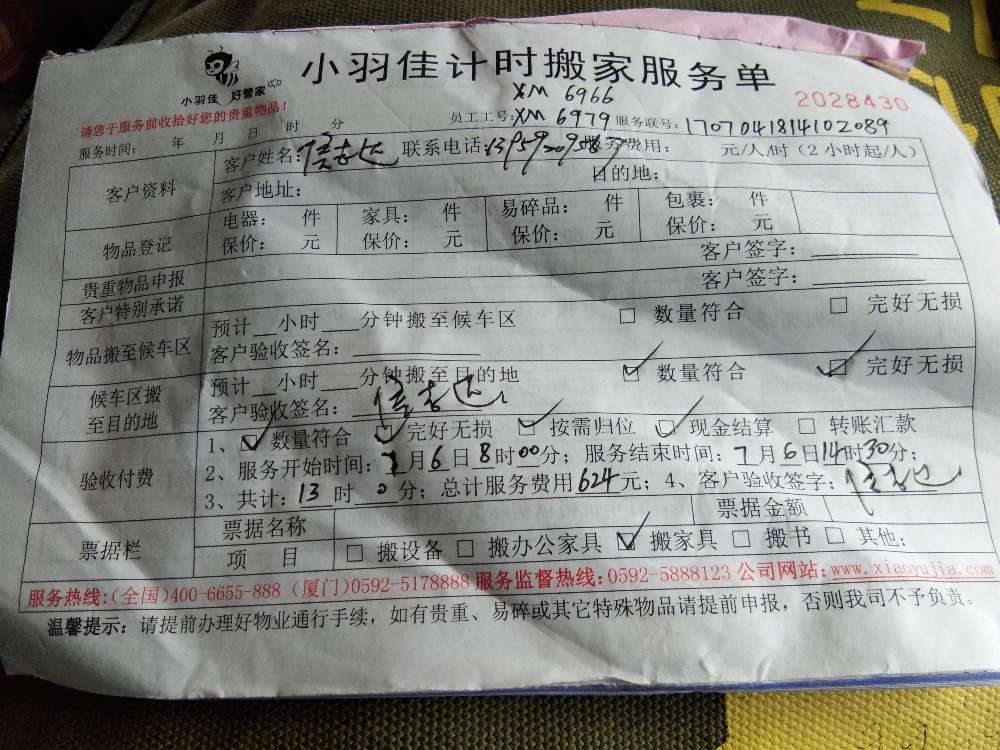 小羽佳 好管家
小羽佳计时搬家服务单
XM 6966
2028430
请您于服务前收拾好您的贵重物品!
员工工号: XM 6979 服务联号: 1707041814102089
服务时间: 年 月 日 时 分
客户资料
客户姓名: 联系电话: 服务费用: 元/人/时(2小时起/人)
客户地址: 目的地:
物品登记
电器: 件 家具: 件 易碎品: 件 包裹: 件
保价: 元 保价: 元 保价: 元 保价: 元
贵重物品申报 客户签字:
客户特别承诺 客户签字:
物品搬至候车区
预计__小时___分钟搬至候车区 □ 数量符合 □ 完好无损
客户验收签名:
候车区搬至目的地
预计__小时___分钟搬至目的地 ☑ 数量符合 ☑ 完好无损
客户验收签名:
验收付费
1、☑ 数量符合 ☑ 完好无损 ☑ 按需归位 ☑ 现金结算 □ 转账汇款
2、服务开始时间: 7月6日8时00分; 服务结束时间: 7月6日14时30分;
3、共计: 13时0分; 总计服务费用624元; 4、客户验收签字:
票据栏
票据名称 票据金额
项 目 □ 搬设备 □ 搬办公家具 ☑ 搬家具 □ 搬书 □ 其他:
服务热线:(全国)400-6655-888 (厦门)0592-5178888 服务监督热线:0592-5888123 公司网站:www.xiaoyujia.com
温馨提示: 请提前办理好物业通行手续，如有贵重、易碎或其它特殊物品请提前申报，否则我司不予负责。